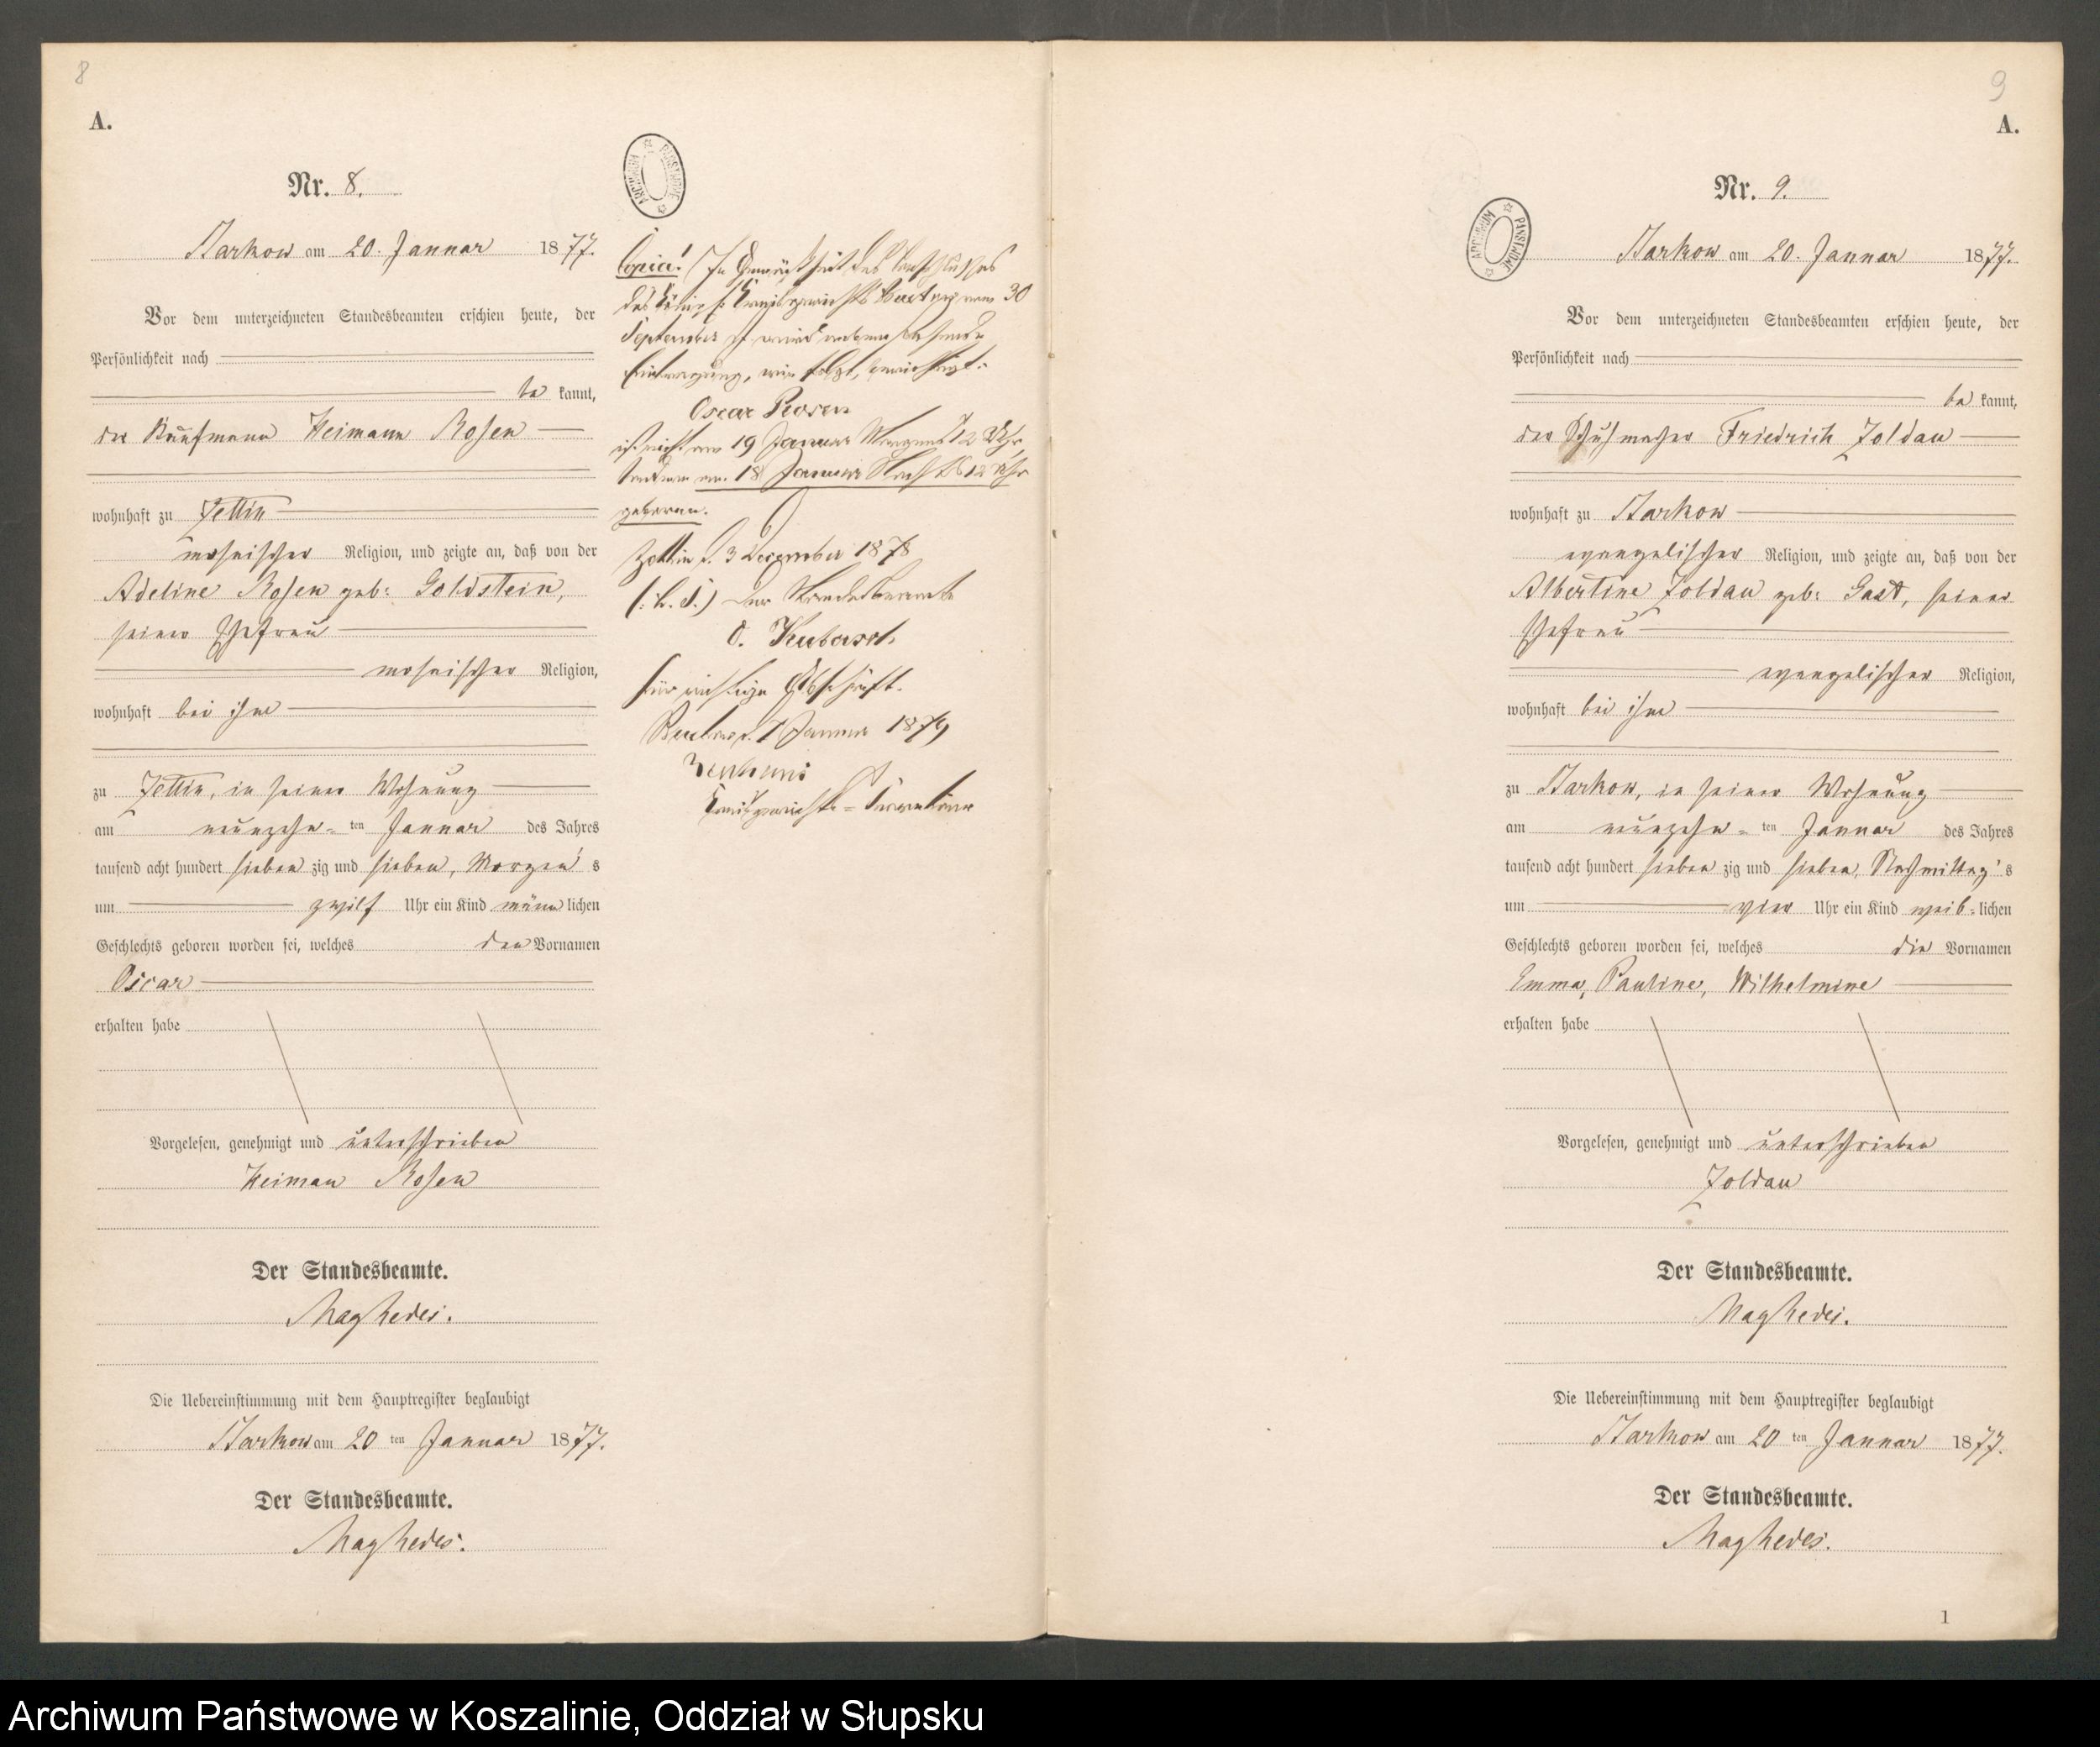 8
A.
Nr. 8.
Starkow am 20. Januar 1877.
Vor dem unterzeichneten Standesbeamten erschien heute, der
Persönlichkeit nach
be kannt,
der Kaufmann Heimann Rosen
wohnhaft zu Zettin
mosaischer Religion, und zeigte an, daß von der
Adeline Rosen geb: Goldstein,
seiner Ehefrau
mosaischer Religion,
wohnhaft bei ihm
zu Zettin, in seiner Wohnung
am neunzehn-ten Januar des Jahres
tausend acht hundert sieben zig und sieben, Morgen's
um zwölf Uhr ein Kind männlichen
Geschlechts geboren worden sei, welches den Vornamen
Oscar
erhalten habe
Vorgelesen, genehmigt und unterschrieben
Heiman Rosen
Der Standesbeamte.
Die Uebereinstimmung mit dem Hauptregister beglaubigt
Starkow am 20 ten Januar 1877.
Der Standesbeamte.
ARCHIWUM PAŃSTWOWE
Copia! In Gemäßheit des Beschlusses
des Königl: Kreisgerichts vom 30
September wird nebenstehende
Eintragung, wie folgt, berichtigt:
Oscar Rosen
ist nicht am 19 Januar Morgens 12 Uhr,
sondern am 18 Januar Nachts 12 Uhr
geboren.
Zettin d. 3 December 1878
(: L. S.) Der Standesbeamte
Für richtige Abschrift.
d. 7 Januar 1879
Kreisgerichts-Secretair
9
A.
Nr. 9.
ARCHIWUM PAŃSTWOWE
Starkow am 20. Januar 1877.
Vor dem unterzeichneten Standesbeamten erschien heute, der
Persönlichkeit nach
be kannt,
der Schuhmacher Friedrich Zoldau
wohnhaft zu Starkow
evangelischer Religion, und zeigte an, daß von der
Albertine Zoldau geb: Gast, seiner
Ehefrau
evangelischer Religion,
wohnhaft bei ihm
zu Starkow, in seiner Wohnung
am neunzehn-ten Januar des Jahres
tausend acht hundert sieben zig und sieben, Nachmittag's
um vier Uhr ein Kind weib-lichen
Geschlechts geboren worden sei, welches die Vornamen
Emma, Pauline, Wilhelmine
erhalten habe
Vorgelesen, genehmigt und unterschrieben
Zoldau
Der Standesbeamte.
Die Uebereinstimmung mit dem Hauptregister beglaubigt
Starkow am 20 ten Januar 1877.
Der Standesbeamte.
1
Archiwum Państwowe w Koszalinie, Oddział w Słupsku